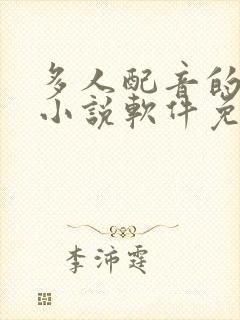 多人配音的
小説軟件免
李沛霆